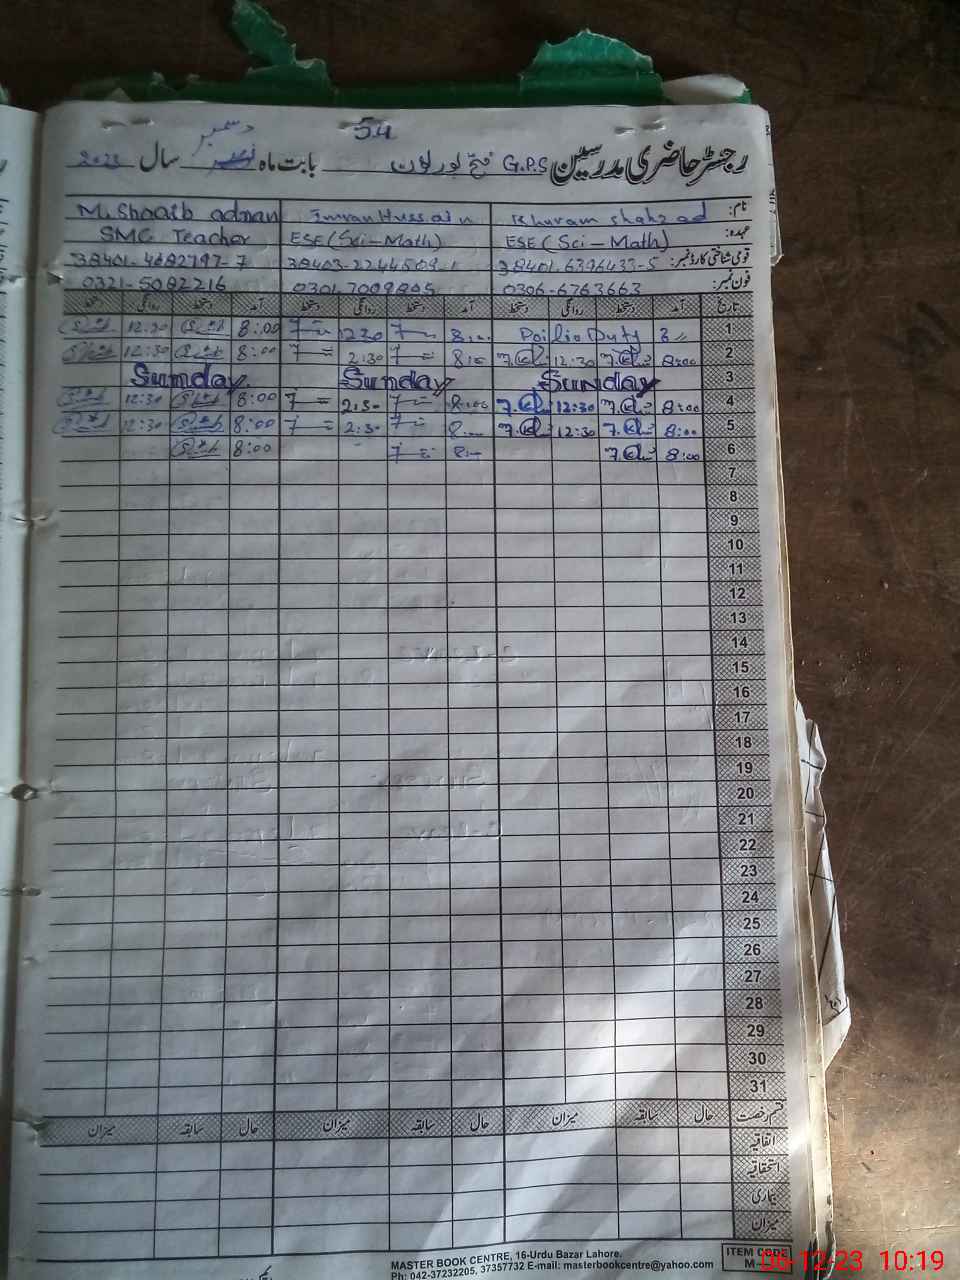 54
رجسٹر حاضری مدرسین G.P.S فتح پور لون بابت ماہ دسمبر سال 2023
نام: Khuram shahzad Imran Hussain M. Shoaib adnan
عہدہ: ESE (Sci-Math) ESE (Sci-Math) SMC Teacher
قومی شناختی کارڈ نمبر: 38401-6396433-5 38403-2244509-1 38401-4682797-7
فون نمبر: 0306-6763663 0301-7009895 0321-5082216
تاریخ آمد دستخط روانگی دستخط آمد دستخط روانگی دستخط آمد دستخط روانگی دستخط
1 Poilio Duty 8 12:30 8:00 12:30
2 8:00 12:30 8 2:30 8:00 12:30
3 Sunday Sunday Sunday
4 8:00 12:30 8:00 2:30 8:00 12:30
5 8:00 12:30 8 2:30 8:00 12:30
6 8:00 8 8:00
7
8
9
10
11
12
13
14
15
16
17
18
19
20
21
22
23
24
25
26
27
28
29
30
31
قسم رخصت حال سابقہ میزان حال سابقہ میزان حال سابقہ میزان
اتفاقیہ
استحقاقیہ
بیماری
میزان
MASTER BOOK CENTRE, 16-Urdu Bazar Lahore.
Ph: 042-37232205, 37357732 E-mail: masterbookcentre@yahoo.com
ITEM CODE
M-
06-12-23 10:19